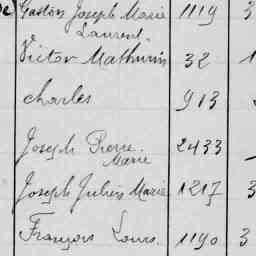 Gaston Joseph Marie 1119 3
Laurent
Victor Mathurin 32 1
Charles 913
Joseph Pierre 2433
Marie
Joseph Julien Marie 1217 3
François Louis. 1190 3